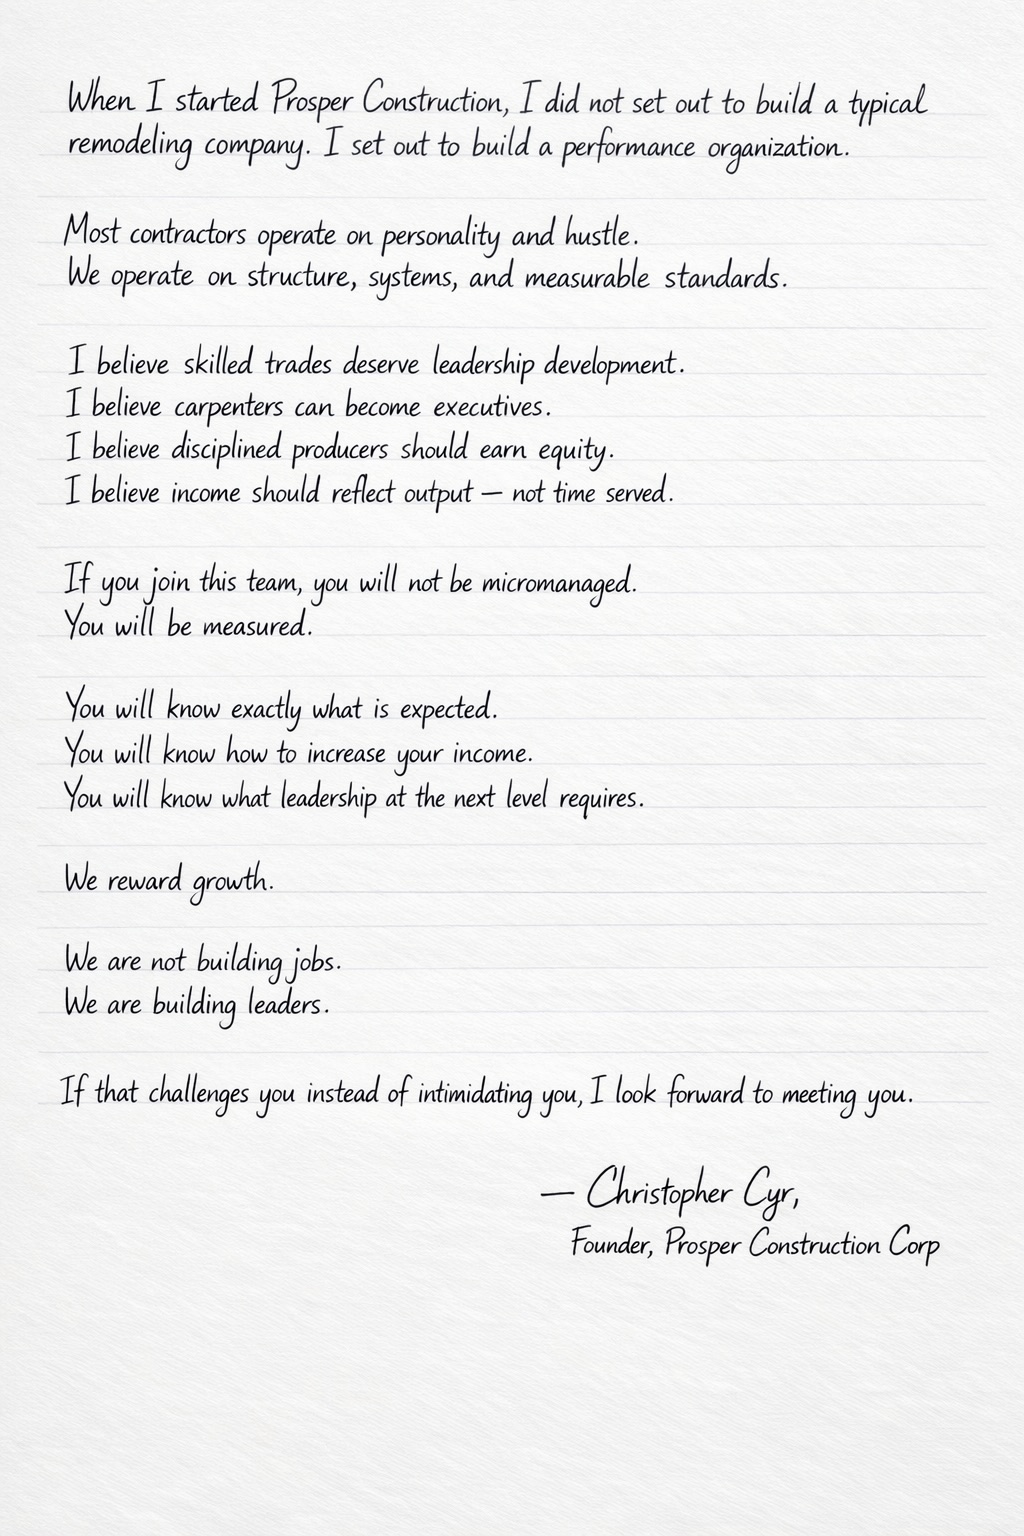 When I started Prosper Construction, I did not set out to build a typical
remodeling company. I set out to build a performance organization.
Most contractors operate on personality and hustle.
We operate on structure, systems, and measurable standards.
I believe skilled trades deserve leadership development.
I believe carpenters can become executives.
I believe disciplined producers should earn equity.
I believe income should reflect output — not time served.
If you join this team, you will not be micromanaged.
You will be measured.
You will know exactly what is expected.
You will know how to increase your income.
You will know what leadership at the next level requires.
We reward growth.
We are not building jobs.
We are building leaders.
If that challenges you instead of intimidating you, I look forward to meeting you.
— Christopher Cyr,
Founder, Prosper Construction Corp